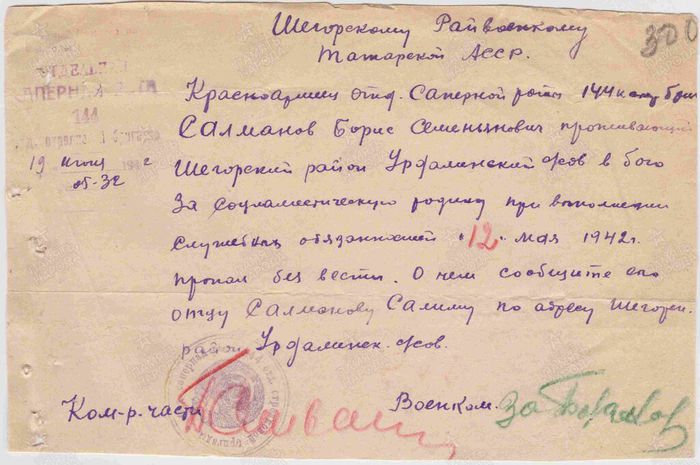 Шегорскому Райвоенкому
Татарской АССР.
300
ОТДЕЛЬНАЯ
САПЕРНАЯ РОТА
144
19 июня 194 г
об-32
Красноармеец отд. Саперной роты 144 бриг
Салманов Борис Семеньянович проживающий
Шегорский район Урдалинский в бою
За социалистическую родину при выполнении
служебных обязанностей "12" мая 1942г.
пропал без вести. О чем сообщите его
отцу Салманову Салиму по адресу Шегорск.
район Урдалинск.
Ком-р. части
Военком. за